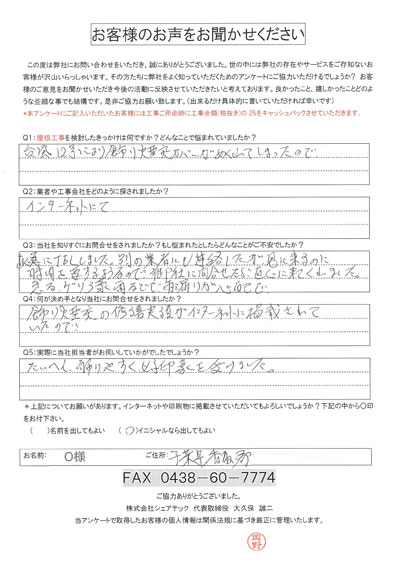 お客様のお声をお聞かせください
この度は弊社にお問い合わせをいただき、誠にありがとうございました。世の中には弊社の存在やサービスをご存知ないお
客様が沢山いらっしゃいます。その方たちに弊社をよく知っていただくためのアンケートにご協力いただけるでしょうか？ お客
様のご意見をお聞かせいただき今後の活動に反映させていただきたいと考えております。良かったこと、嬉しかったことどのよ
うな些細な事でも結構です。是非ご協力お願い致します。（出来るだけ具体的に書いていただければ幸いです）
*本アンケートにご記入いただいたお客様には工事ご用命時に工事金額(税抜き)の 2%をキャッシュバックさせていただきます。
Q1:屋根工事を検討したきっかけは何ですか？どんなことで悩まれていましたか？
台風12号により飾り煙突カバーがめくれてしまったので
Q2:業者や工事会社をどのように探されましたか？
インターネットにて
Q3:当社を知りすぐにお問合せをされましたか？もし悩まれたとしたらどんなことがご不安でしたか？
別の業者にも連絡したが見に来るのに
時間を要するようなので御社に問合せたら直ぐに来てくれました。
Q4:何が決め手となり当社にお問合せをされましたか？
飾り煙突の修繕実績がインターネットに掲載されて
いたので
Q5:実際に当社担当者がお伺いしていかがでしたでしょうか？
たいへん解りやすく好印象を受けました。
＊上記についてお願いがあります。インターネットや印刷物に掲載させていただいてもよろしいでしょうか？下記の中から〇印
をお付下さい。
（　）名前を出してもよい　（〇）イニシャルなら出してもよい
お名前: O様 ご住所: 千葉県香取郡
FAX 0438-60-7774
ご協力ありがとうございました。
株式会社シェアテック 代表取締役 大久保 誠二
当アンケートで取得したお客様の個人情報は関係法規に基づき厳正に管理いたします。
岡野